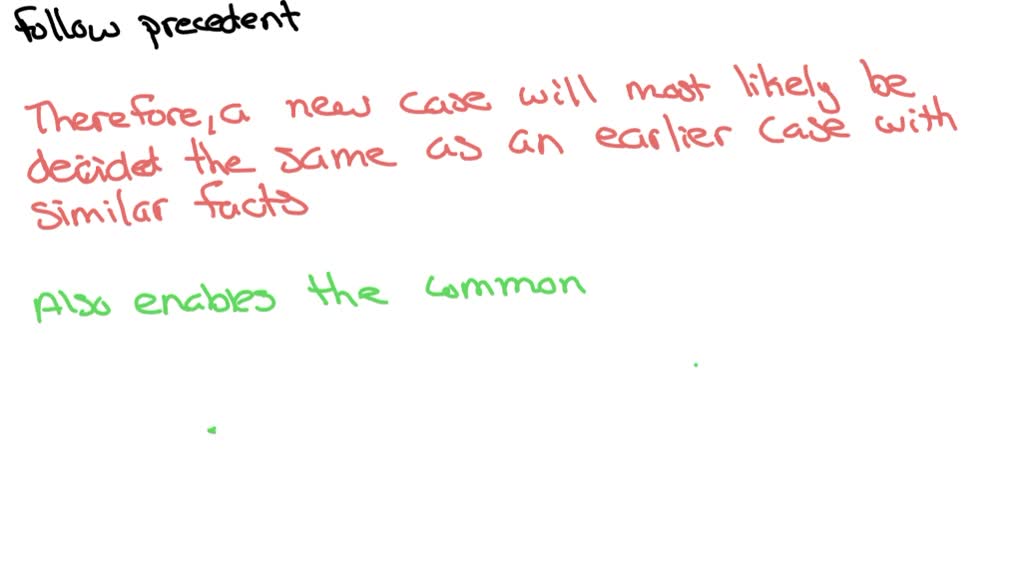 follow precedent
Therefore, a new case will most likely be
decided the same as an earlier case with
similar facts
Also enables the common